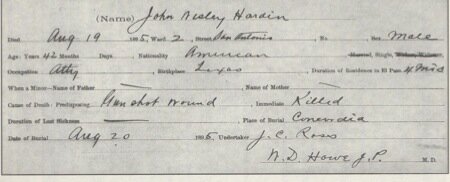 (Name) John Wesley Hardin
Died Aug 19 1895, Ward 2, Street San Antonio No. Sex Male
Age: Years 42 Months Days Nationality American Married, Single, Widow, Widower,
Occupation Atty Birthplace Texas Duration of Residence in El Paso 4 Mos
When a Minor—Name of Father — Name of Mother —
Cause of Death: Predisposing Gun shot wound Immediate Killed
Duration of Last Sickness — Place of Burial Concordia
Date of Burial Aug 20 1895, Undertaker J. C. Ross
W. D. Howe J. P. M. D.